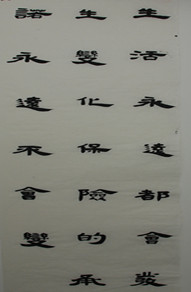 生活永遠都會發
生變化保險的承
諾永遠不會變